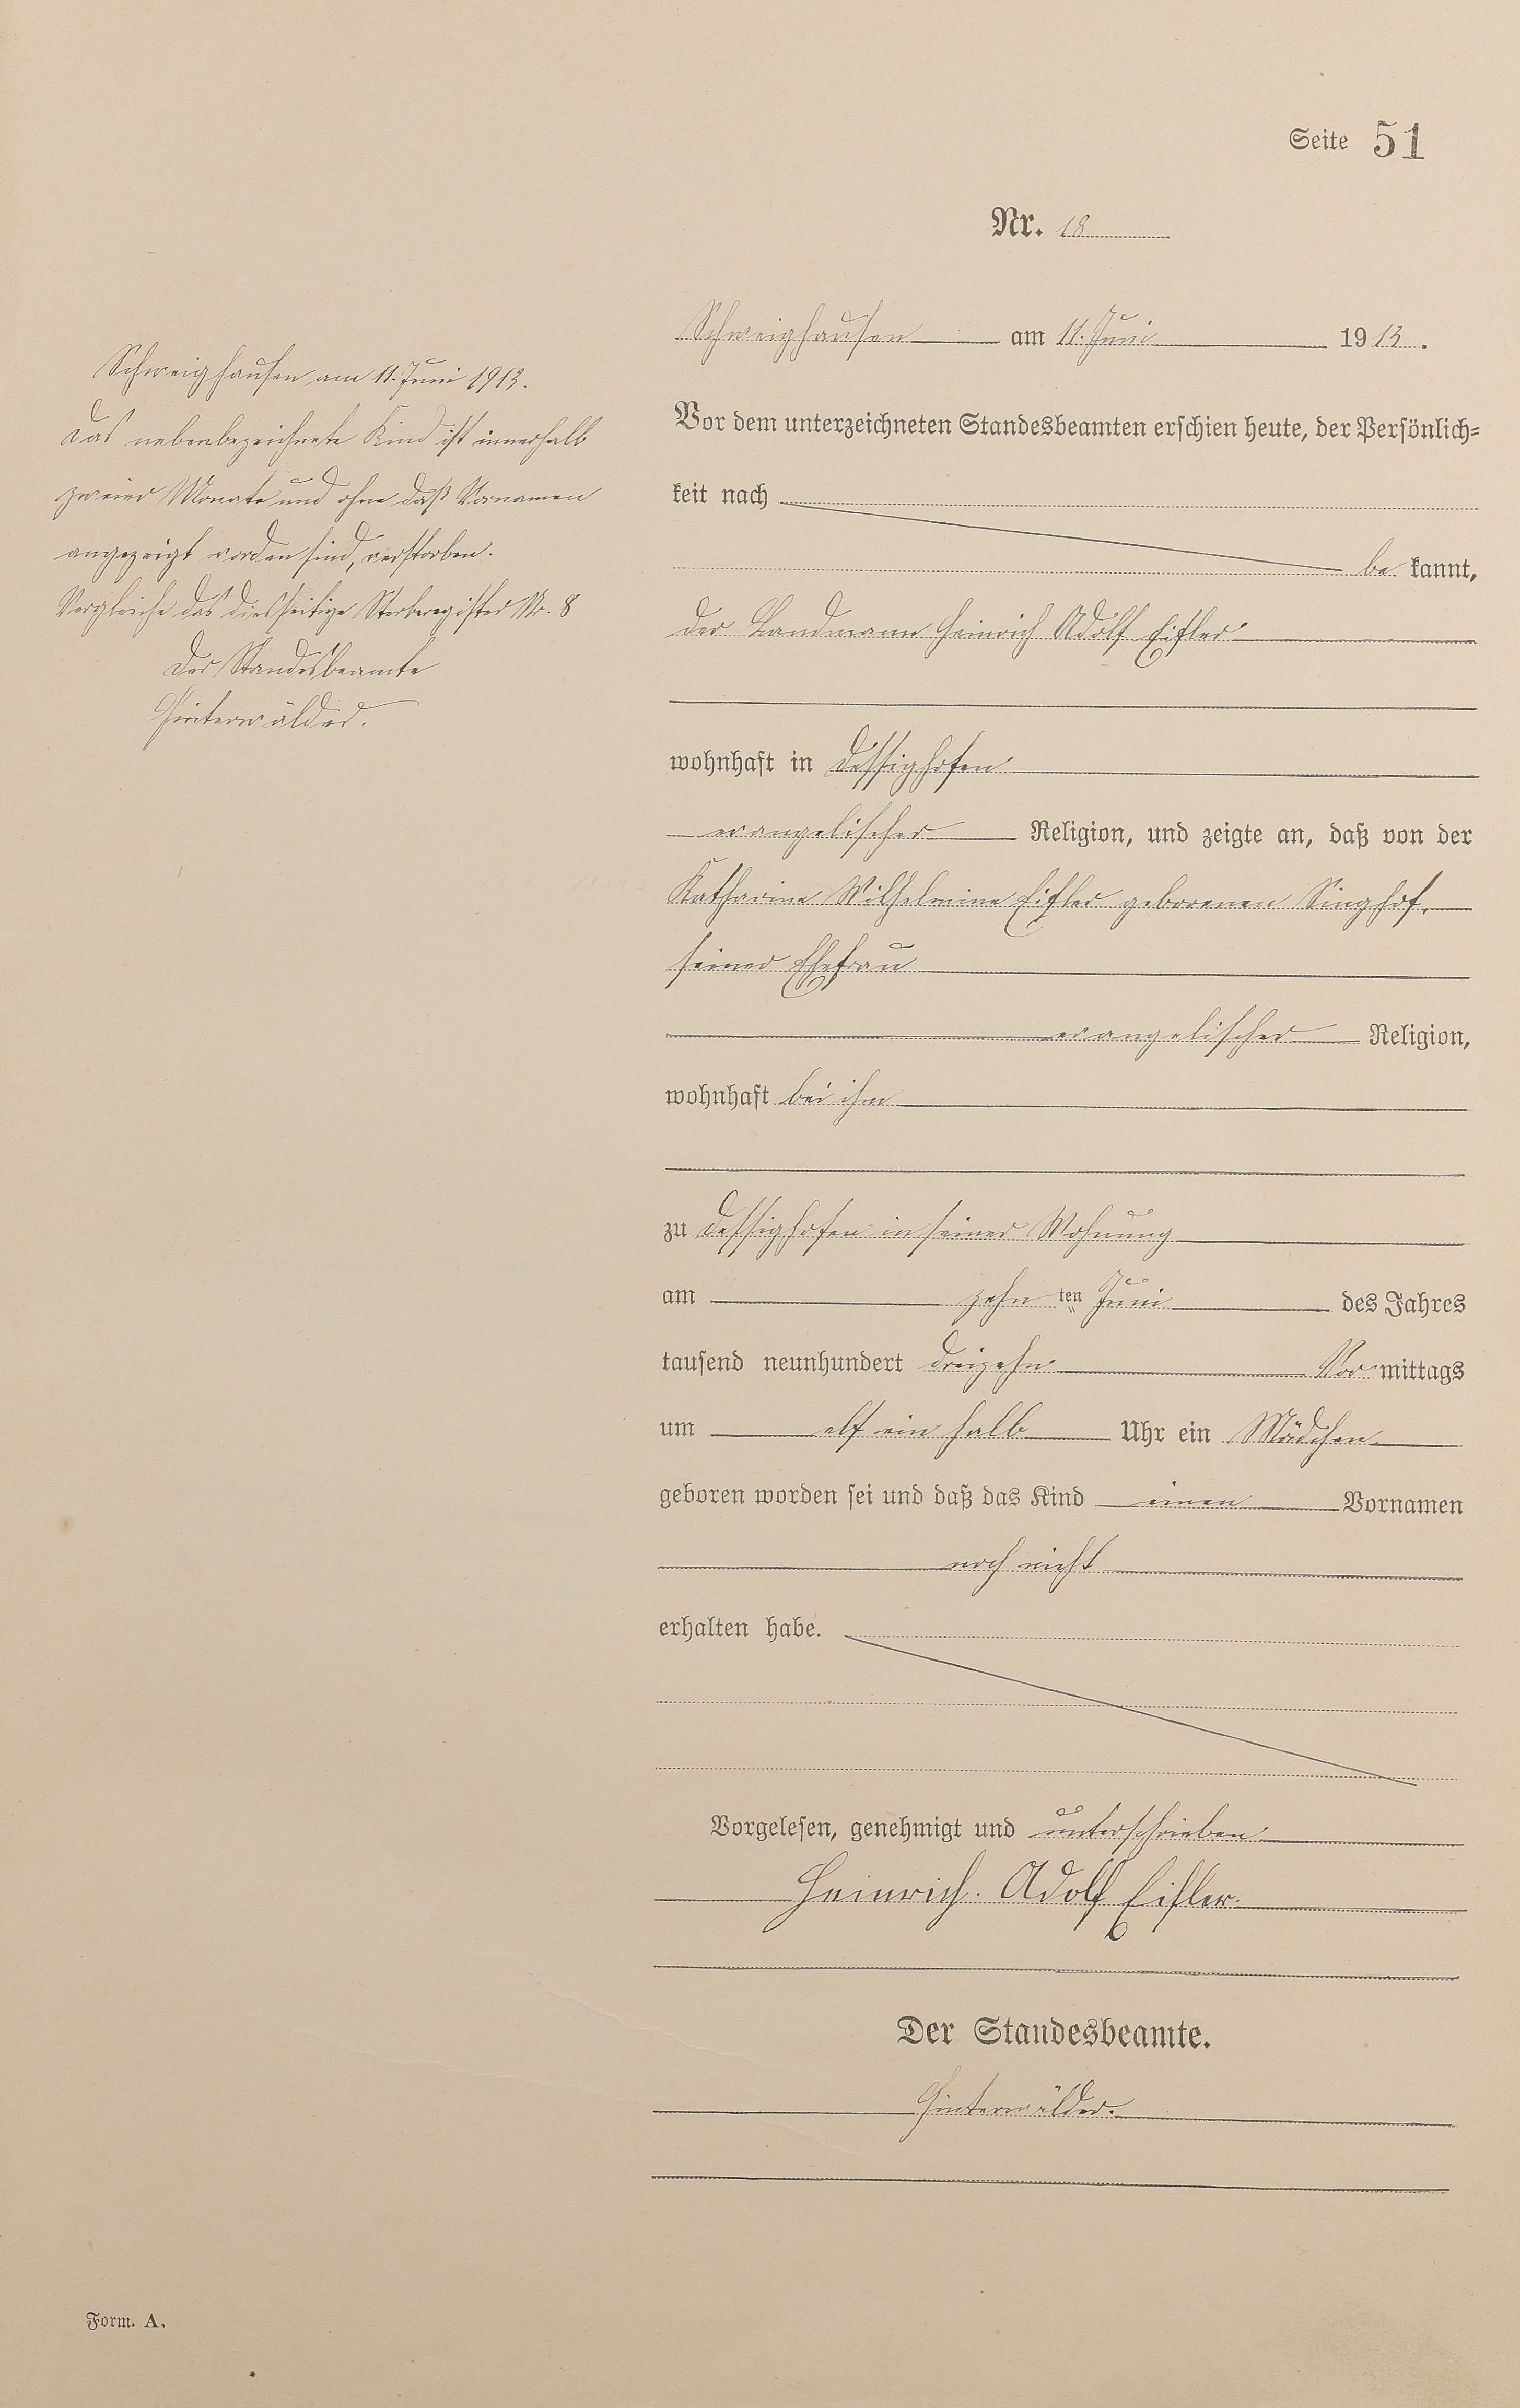 Seite 51
Nr. 18
Schweighausen am 11. Juni 1913.
Vor dem unterzeichneten Standesbeamten erschien heute, der Persönlich-
keit nach
be kannt,
der Landmann Heinrich Adolf Eifler
wohnhaft in Dessighofen
evangelischer Religion, und zeigte an, daß von der
Katharine Wilhelmine Eifler geborenen Singhof,
seiner Ehefrau
evangelischer Religion,
wohnhaft bei ihm
zu Dessighofen in seiner Wohnung
am zehn ten Juni des Jahres
tausend neunhundert dreizehn Vor mittags
um elf ein halb Uhr ein Mädchen
geboren worden sei und daß das Kind einen Vornamen
noch nicht
erhalten habe.
Vorgelesen, genehmigt und unterschrieben
Heinrich Adolf Eifler.
Der Standesbeamte.
Hinterwälder.
Schweighausen am 11. Juni 1913.
Das nebenbezeichnete Kind ist innerhalb
zweier Monate und ohne daß Vornamen
angezeigt worden sind, verstorben.
Vergleiche das diesseitige Sterberegister Nr. 8
Der Standesbeamte
Hinterwälder.
Form. A.